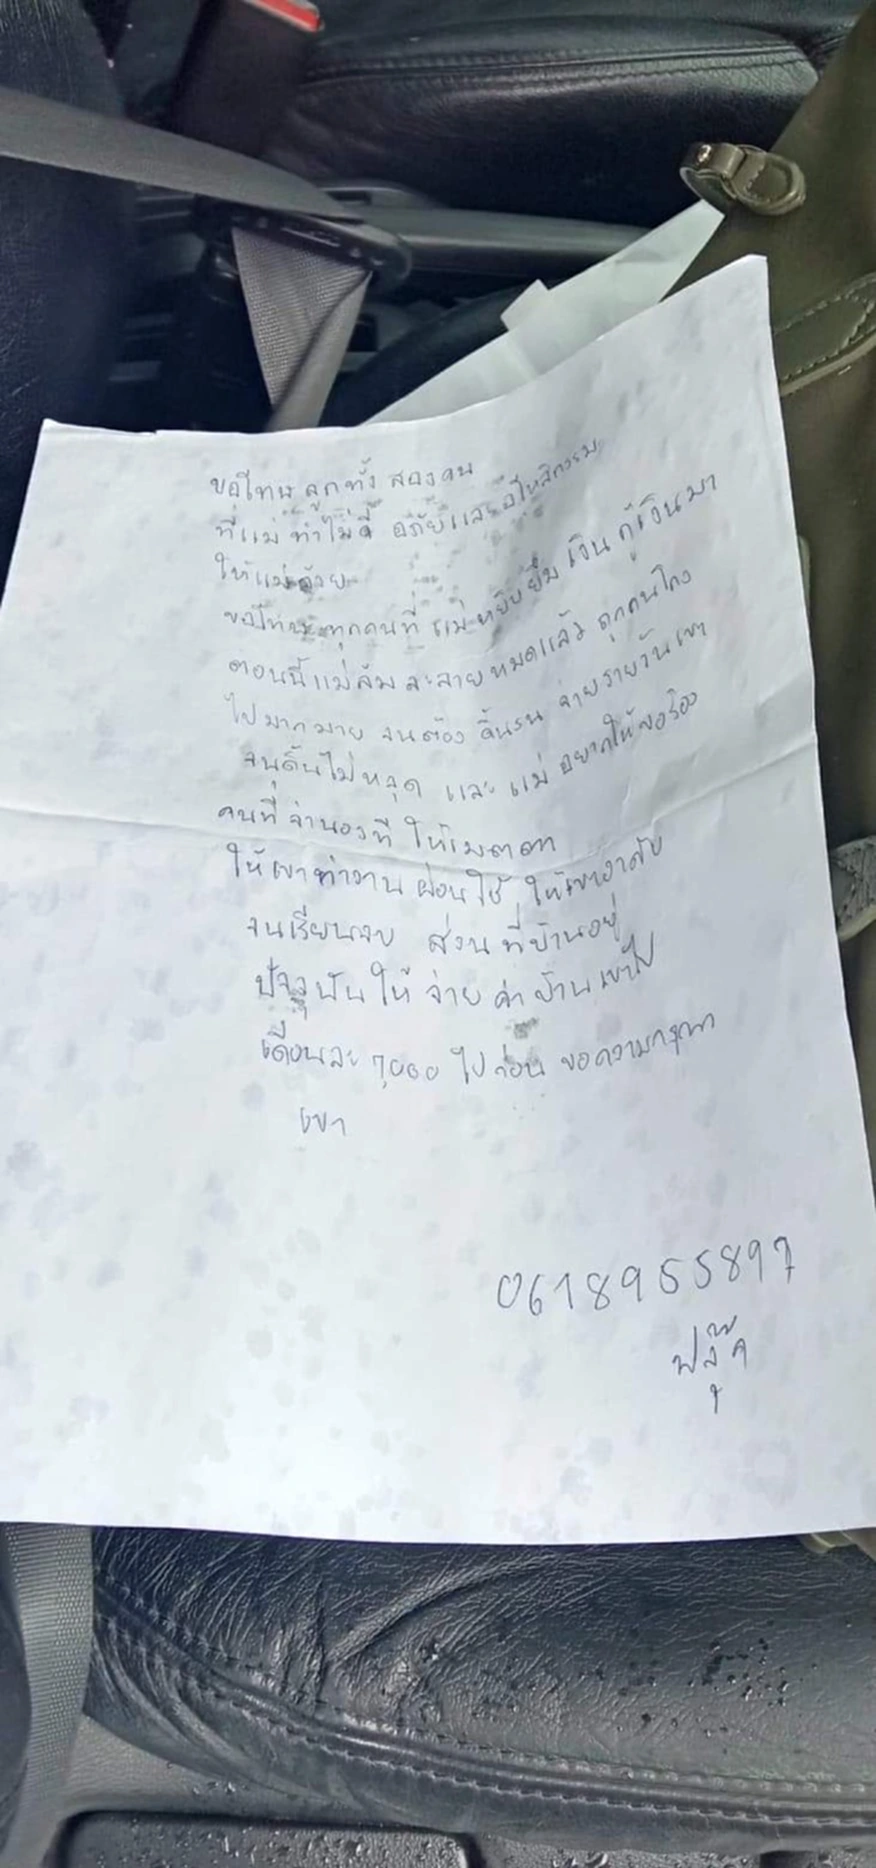 ขอโทษ ลูกทั้ง สองคน
ที่แม่ ทำไม่ดี อภัยและอโหสิกรรม
ให้แม่ด้วย
ขอโทษ ทุกคนที่ แม่หยิบยืม เงิน กู้เงินมา
ตอนนี้แม่ล้ม ละลาย หมดแล้ว ถูกคนโกง
ไปมากมาย จนต้อง ดิ้นรน จ่ายรายวันเขา
จนดิ้นไม่หลุด และ แม่ อยากให้ขอร้อง
คนที่ จำนองที่ ให้เมตตา
ให้เขาทำงาน ผ่อนใช้ ให้เขาอาศัย
จนเรียนจบ ส่วน ที่บ้านอยู่
ปัจจุบัน ให้ จ่าย ค่า บ้านเขาไป
เดือนละ 7,000 ไปก่อน ขอความกรุณา
เขา
0618955897